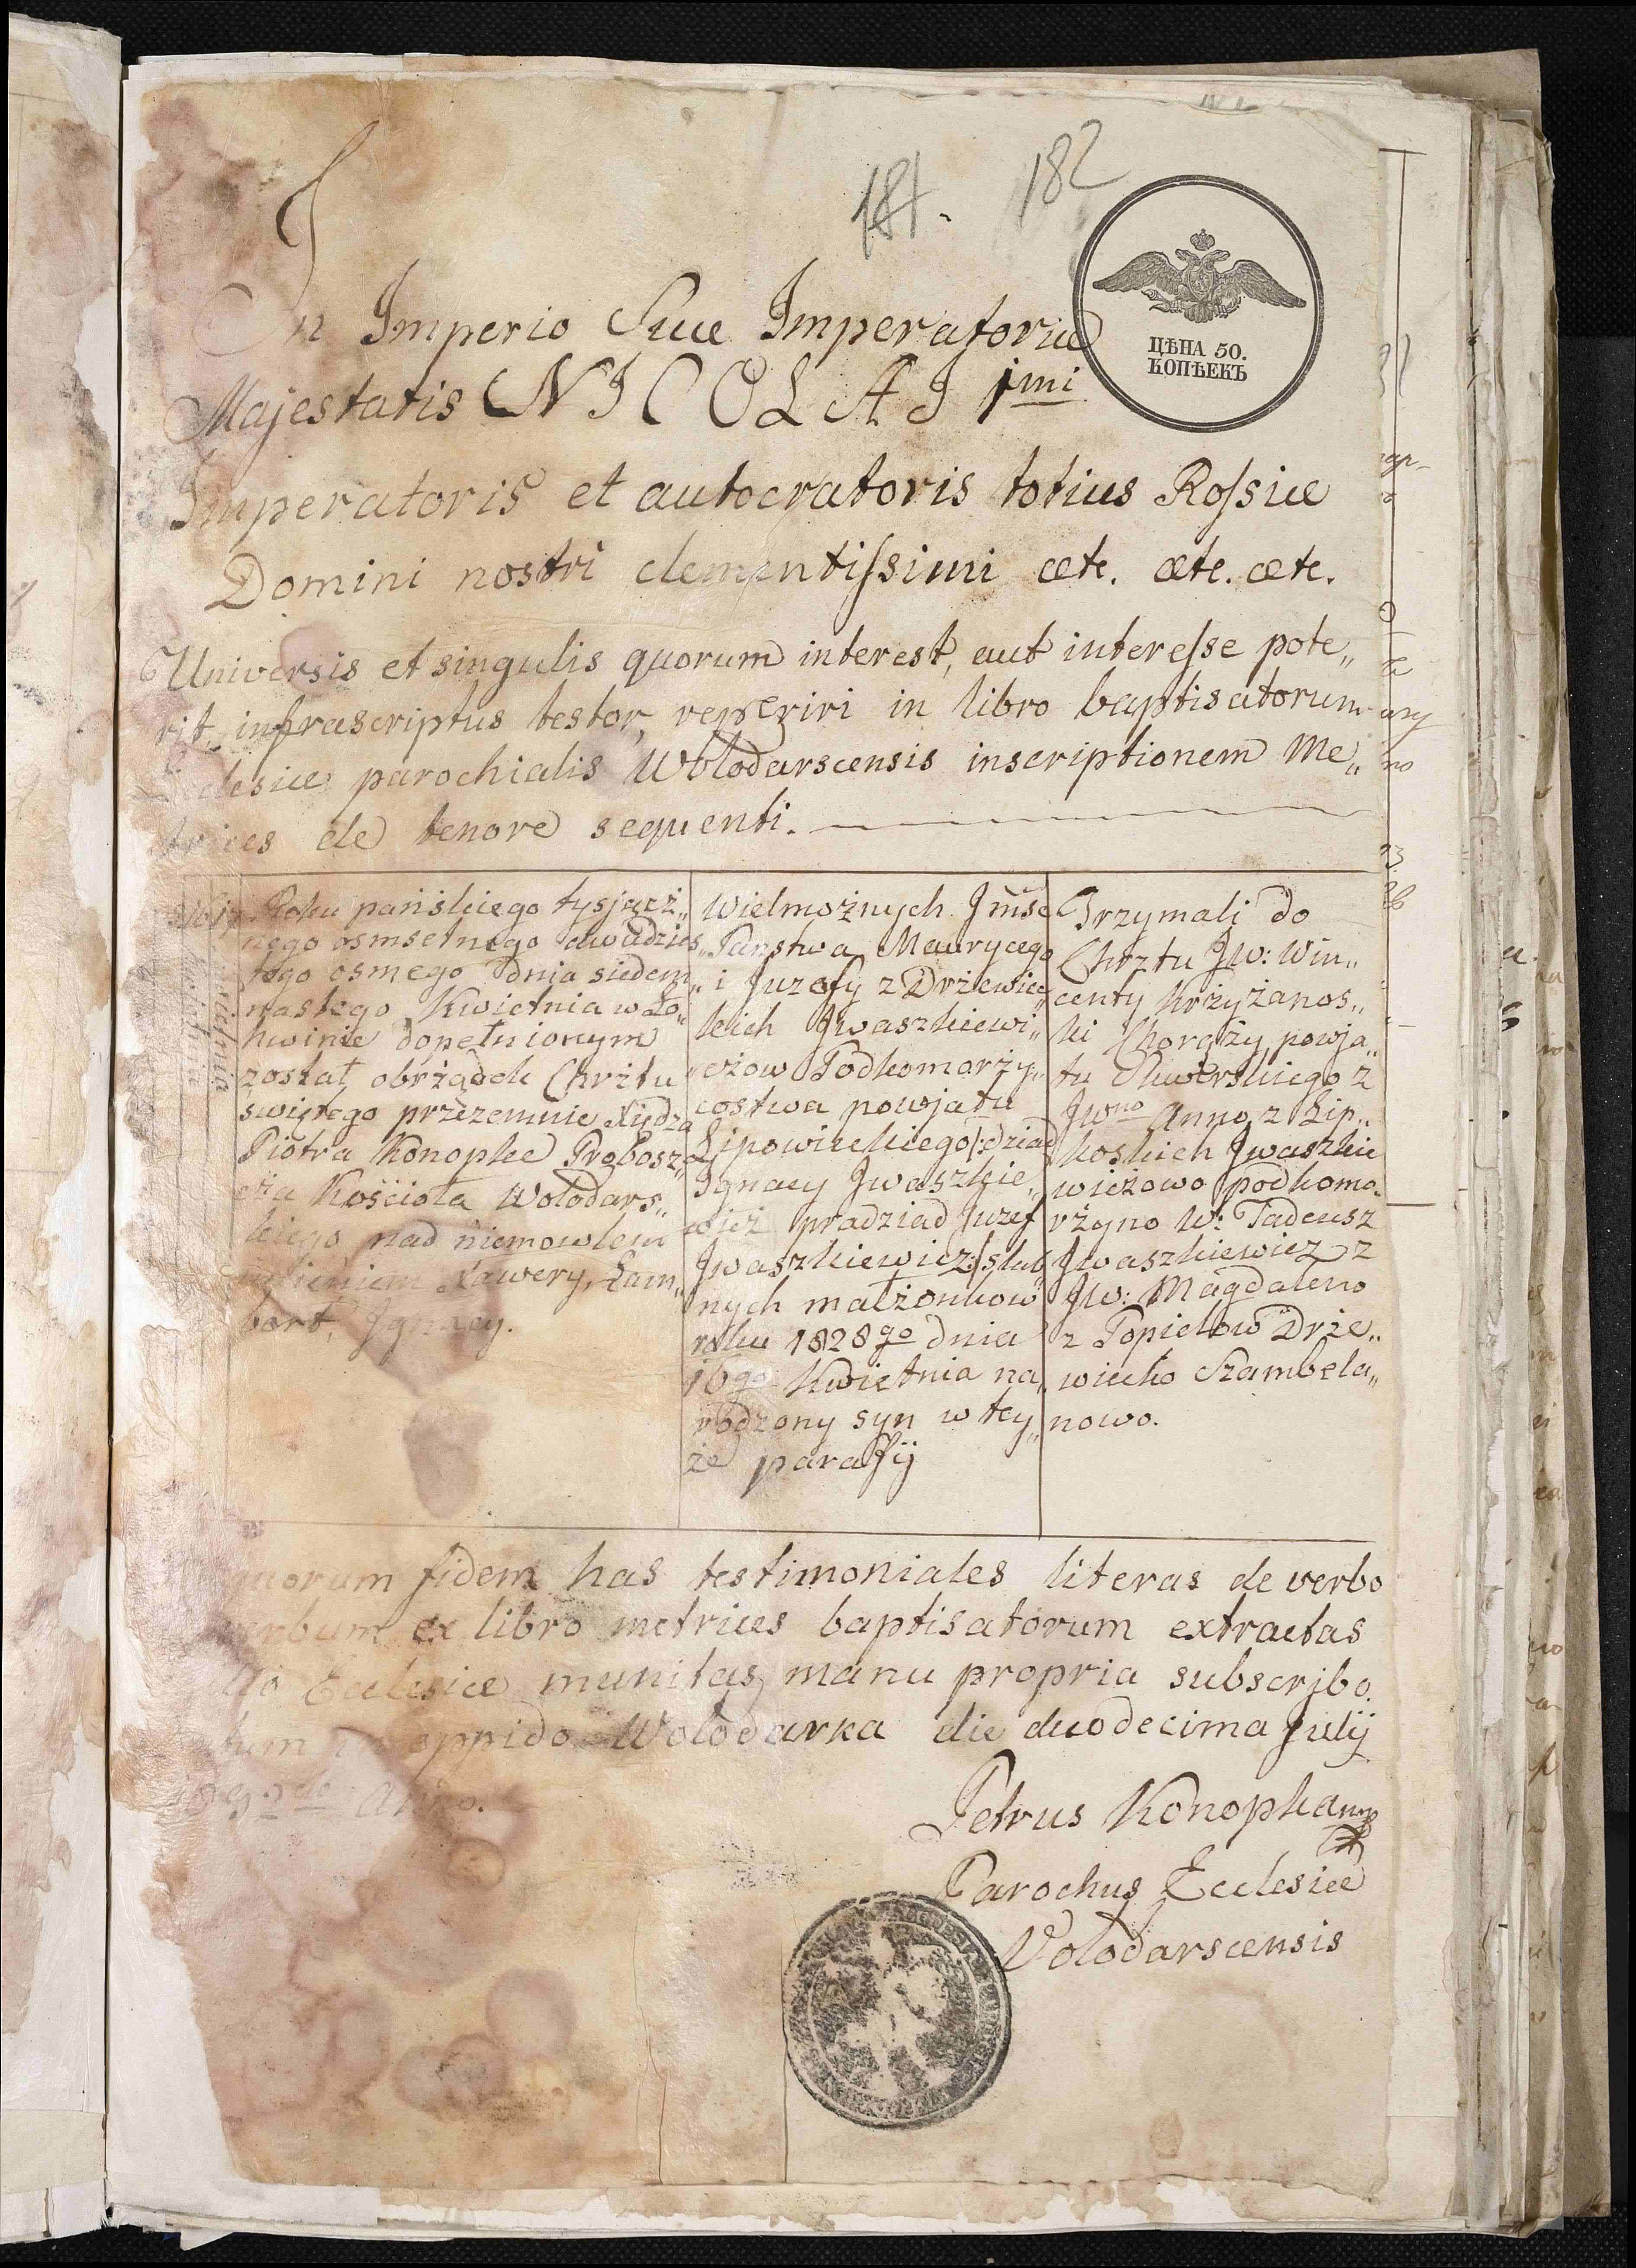 181. 182
ЦѢНА 50.
КОПѢЕКЪ
In Imperio Suæ Imperatoriæ
Majestatis NICOLAI 1mi
Imperatoris et autocratoris totius Rossiæ
Domini nostri clementissimi æte. æte. æte.
Universis et singulis quorum interest, aut interesse pote„
rit, infrascriptus testor, reperiri in libro baptisatorum
Eclesiæ parochialis Wolodarscensis inscriptionem Me„
trices de tenore sequenti.
Roku pańskiego tysjącż„
nego osmsetnego dwudzies„
tego osmego dnia siedem„
nastego Kwietnia w Ło„
hwinie dopełnionym
został obrżądek Chrżtu
swiętego przezemnie Xiędza
Piotra Konopke Probosz„
cża Kościoła Wołodars„
kiego nad niemowlem
imieniem Xawery, Lam„
bert, Ignacy.
Wielmożnych Jmść
Państwa Maurycego
i Juzefy z Drżewiec„
kich Jwaszkiewi„
cżow Podkomorży„
costwa powjatu
Lipowieckiego /:dziad
Ignacy Jwaszkie„
wicż pradziad Juzef
Jwaszkiewicz:/ slub„
nych małżonkow
roku 1828go dnia
16go Kwietnia na„
rodzony syn w tey„
że parafij
Trzymali do
Chrztu Jw: Win„
centy Krżyżanos„
ki Chorąży powja„
tu Skwirskiego z
Jwno Anno z Lip„
koskich Jwaszkie
wicżowo podkomo„
rżyno W: Tadeusz
Jwaszkiewicz z
Jw: Magdaleno
z Popielow Drże„
wiecko Szambela„
nowo.
quorum fidem has testimoniales literas de verbo
verbum ex libro metrices baptisatorum extractas
Ecclesiæ munitas, manu propria subscribo.
oppido Wolodarka die duodecima Julij
Anno.
Petrus Konopka mp
Parochus Ecclesiæ
Volodarscensis